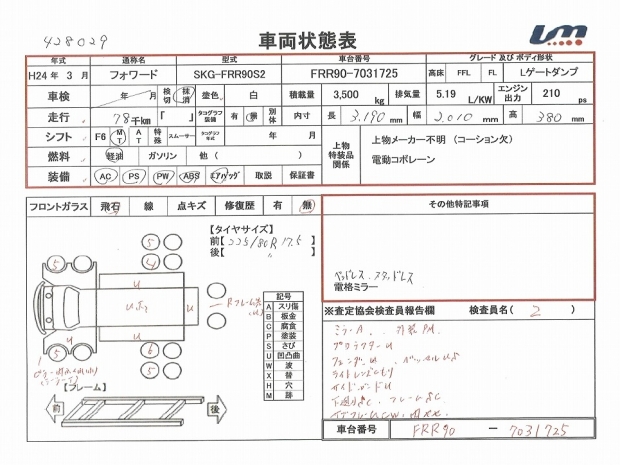 428029
車両状態表
Um
年式 通称名 型式 車台番号 グレード 及び ボディ形状
H24 年 3 月 フォワード SKG-FRR90S2 FRR90-7031725 高床 FFL FL Lゲートダンプ
車検 年 月 検切 抹消 塗色 白 積載量 3,500 kg 排気量 5.19 L/KW エンジン出力 210 ps
走行 78千km 「 」 タコグラフ装備 有 無 別体 内寸 長 3.190 mm 幅 2.010 mm 高 380 mm
シフト F6 MT AT 特殊 スムーサー タコグラフ年式 年 月
燃料 軽油 ガソリン 他 ( )
装備 AC PS PW ABS エアバッグ 取説 保証書
上物特装品関係
上物メーカー不明 (コーション欠)
電動コボレーン
フロントガラス 飛石 線 点キズ 修復歴 有 無
【タイヤサイズ】
前【225/80R 17.5】
後【 〃 】
5
4
5
6
5
5
U
U
U
U
記号
A スリ傷
B 板金
C 腐食
P 塗装
S さび
U 凹凸曲
W 波
X 替
H 穴
M 跡
【フレーム】
前
後
その他特記事項
ベッドレス、スタッドレス
電格ミラー
※査定協会検査員報告欄 検査員名( 2 )
ミラーA、
プロテクターU
車台番号 FRR90 - 7031725